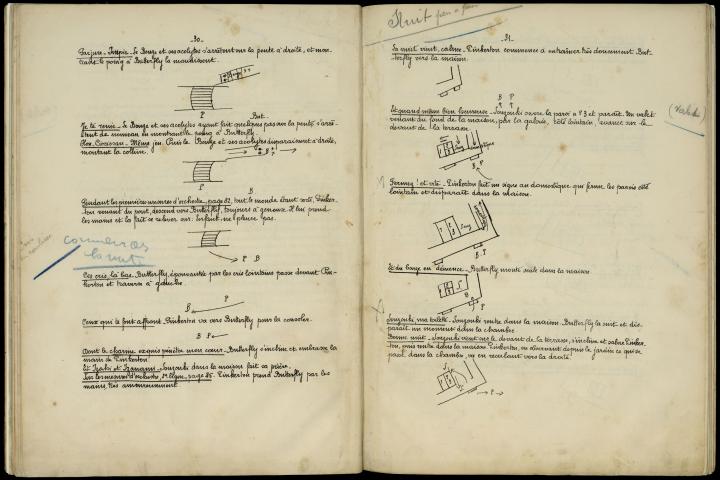 - 30 -
Parjure - Impie - Le Bonze et ses acolytes s'arrêtent sur la pente à droite, et mon-
trant le poing à Butterfly la maudissent.
P
But.
Je te renie - Le Bonze et ses acolytes ayant fait quelques pas sur la pente s'arrê-
tent de nouveau en montrant le poing à Butterfly.
Hou. Ciocisan - Même jeu. Puis le Bonze et ses acolytes disparaissent à droite,
montant la colline.
P
B
Pendant les premières mesures d'orchestre, page 82, tout le monde étant sorti, Pinker-
ton venant du pont, descend vers Butterfly, toujours à genoux. Il lui prend
les mains et la fait se relever sur: Enfant, ne pleure pas.
commencer
la nuit
P B
Ces cris là bas - Butterfly, épouvantée par les cris lointains passe devant Pin-
kerton et traverse à gauche.
P
B
Ceux qui te font affront - Pinkerton va vers Butterfly pour la consoler.
B P
Dont le charme exquis pénètre mon cœur - Butterfly s'incline et embrasse la
main de Pinkerton.
Souzouki dans la maison fait sa prière.
Sur les mesures d'orchestre, page 85. Pinkerton prend Butterfly par les
mains, très amoureusement.
Nuit peu à peu
- 31 -
La nuit vient, calme - Pinkerton commence à entraîner très doucement But-
terfly vers la maison.
B P
Et quand même bien heureuse - Souzouki ouvre la paroi n° 3 et paraît. Un valet
venant du fond de la maison, par la galerie, côté lointain, avance sur le
devant de la terrasse.
(Valet)
B P
Fermez! et vite - Pinkerton fait un signe au domestique qui ferme les parois côté
lointain et disparaît dans la maison.
Et du bonze en démence - Butterfly monte seule dans la maison
S
B
P
Souzouki, ma toilette - Souzouki rentre dans la maison. Butterfly la suit et dis-
paraît un moment dans la chambre.
Bonne nuit - Souzouki vient sur le devant de la terrasse, s'incline et salue Pinker-
ton, puis rentre dans la maison. Pinkerton, en observant depuis le jardin ce qui se
passe dans la chambre, va en reculant vers la droite.
S
B
P